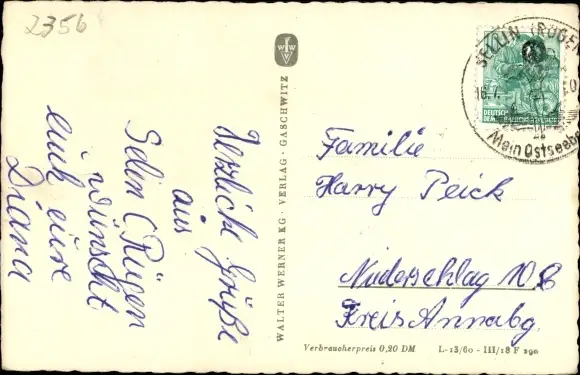 2356
Herzliche Grüße
aus
Selin (Rügen
wünscht
euch eure
Diana
WALTER WERNER KG · VERLAG · GASCHWITZ
SELLIN (RÜGE
Mein Ostseeb
Familie
Harry Peick
Niederschlag 10
Kreis Annabg.
Verbraucherpreis 0,20 DM L-13/60 - III/18 F 290